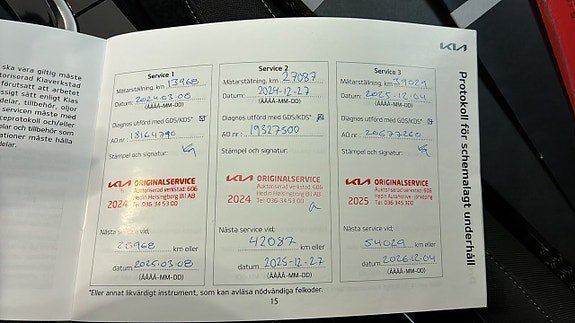 ska vara giltig måste
toriserad Kiaverkstad
förutsatt att arbetet
ssigt sätt enligt Kias
delar, tillbehör, oljor
servicen måste med
ceprotokoll och/eller
olar och tillbehör som
rationer måste hålla
delar.
KIA
Protokoll för schemalagt underhåll
Service 1
Mätarställning, km 13968
Datum: 2024-03-08
(ÅÅÅÅ-MM-DD)
Diagnos utförd med GDS/KDS*
AO nr: 18164790
Stämpel och signatur:
KIA ORIGINALSERVICE
Auktoriserad verkstad: 606
Hedin Helsingborg Bil AB
2024 Tel 036-34 53 00
Nästa service vid:
28968 km eller
datum 2025-03-08
(ÅÅÅÅ-MM-DD)
Service 2
Mätarställning, km 27087
Datum: 2024-12-27
(ÅÅÅÅ-MM-DD)
Diagnos utförd med GDS/KDS*
AO nr: 19327500
Stämpel och signatur:
KIA ORIGINALSERVICE
Auktoriserad verkstad: 606
Hedin Helsingborg Bil AB
2024 Tel: 036-34 53 00
Nästa service vid:
42087 km eller
datum 2025-12-27
(ÅÅÅÅ-MM-DD)
Service 3
Mätarställning, km 39029
Datum: 2025-12-04
(ÅÅÅÅ-MM-DD)
Diagnos utförd med GDS/KDS*
AO nr: 20677260
Stämpel och signatur:
KIA ORIGINALSERVICE
Auktoriserad verkstad: 606
Hedin Automotive Jönköping
2025 Tel: 036-34 53 00
Nästa service vid:
54029 km eller
datum 2026-12-04
(ÅÅÅÅ-MM-DD)
*Eller annat likvärdigt instrument, som kan avläsa nödvändiga felkoder.
15